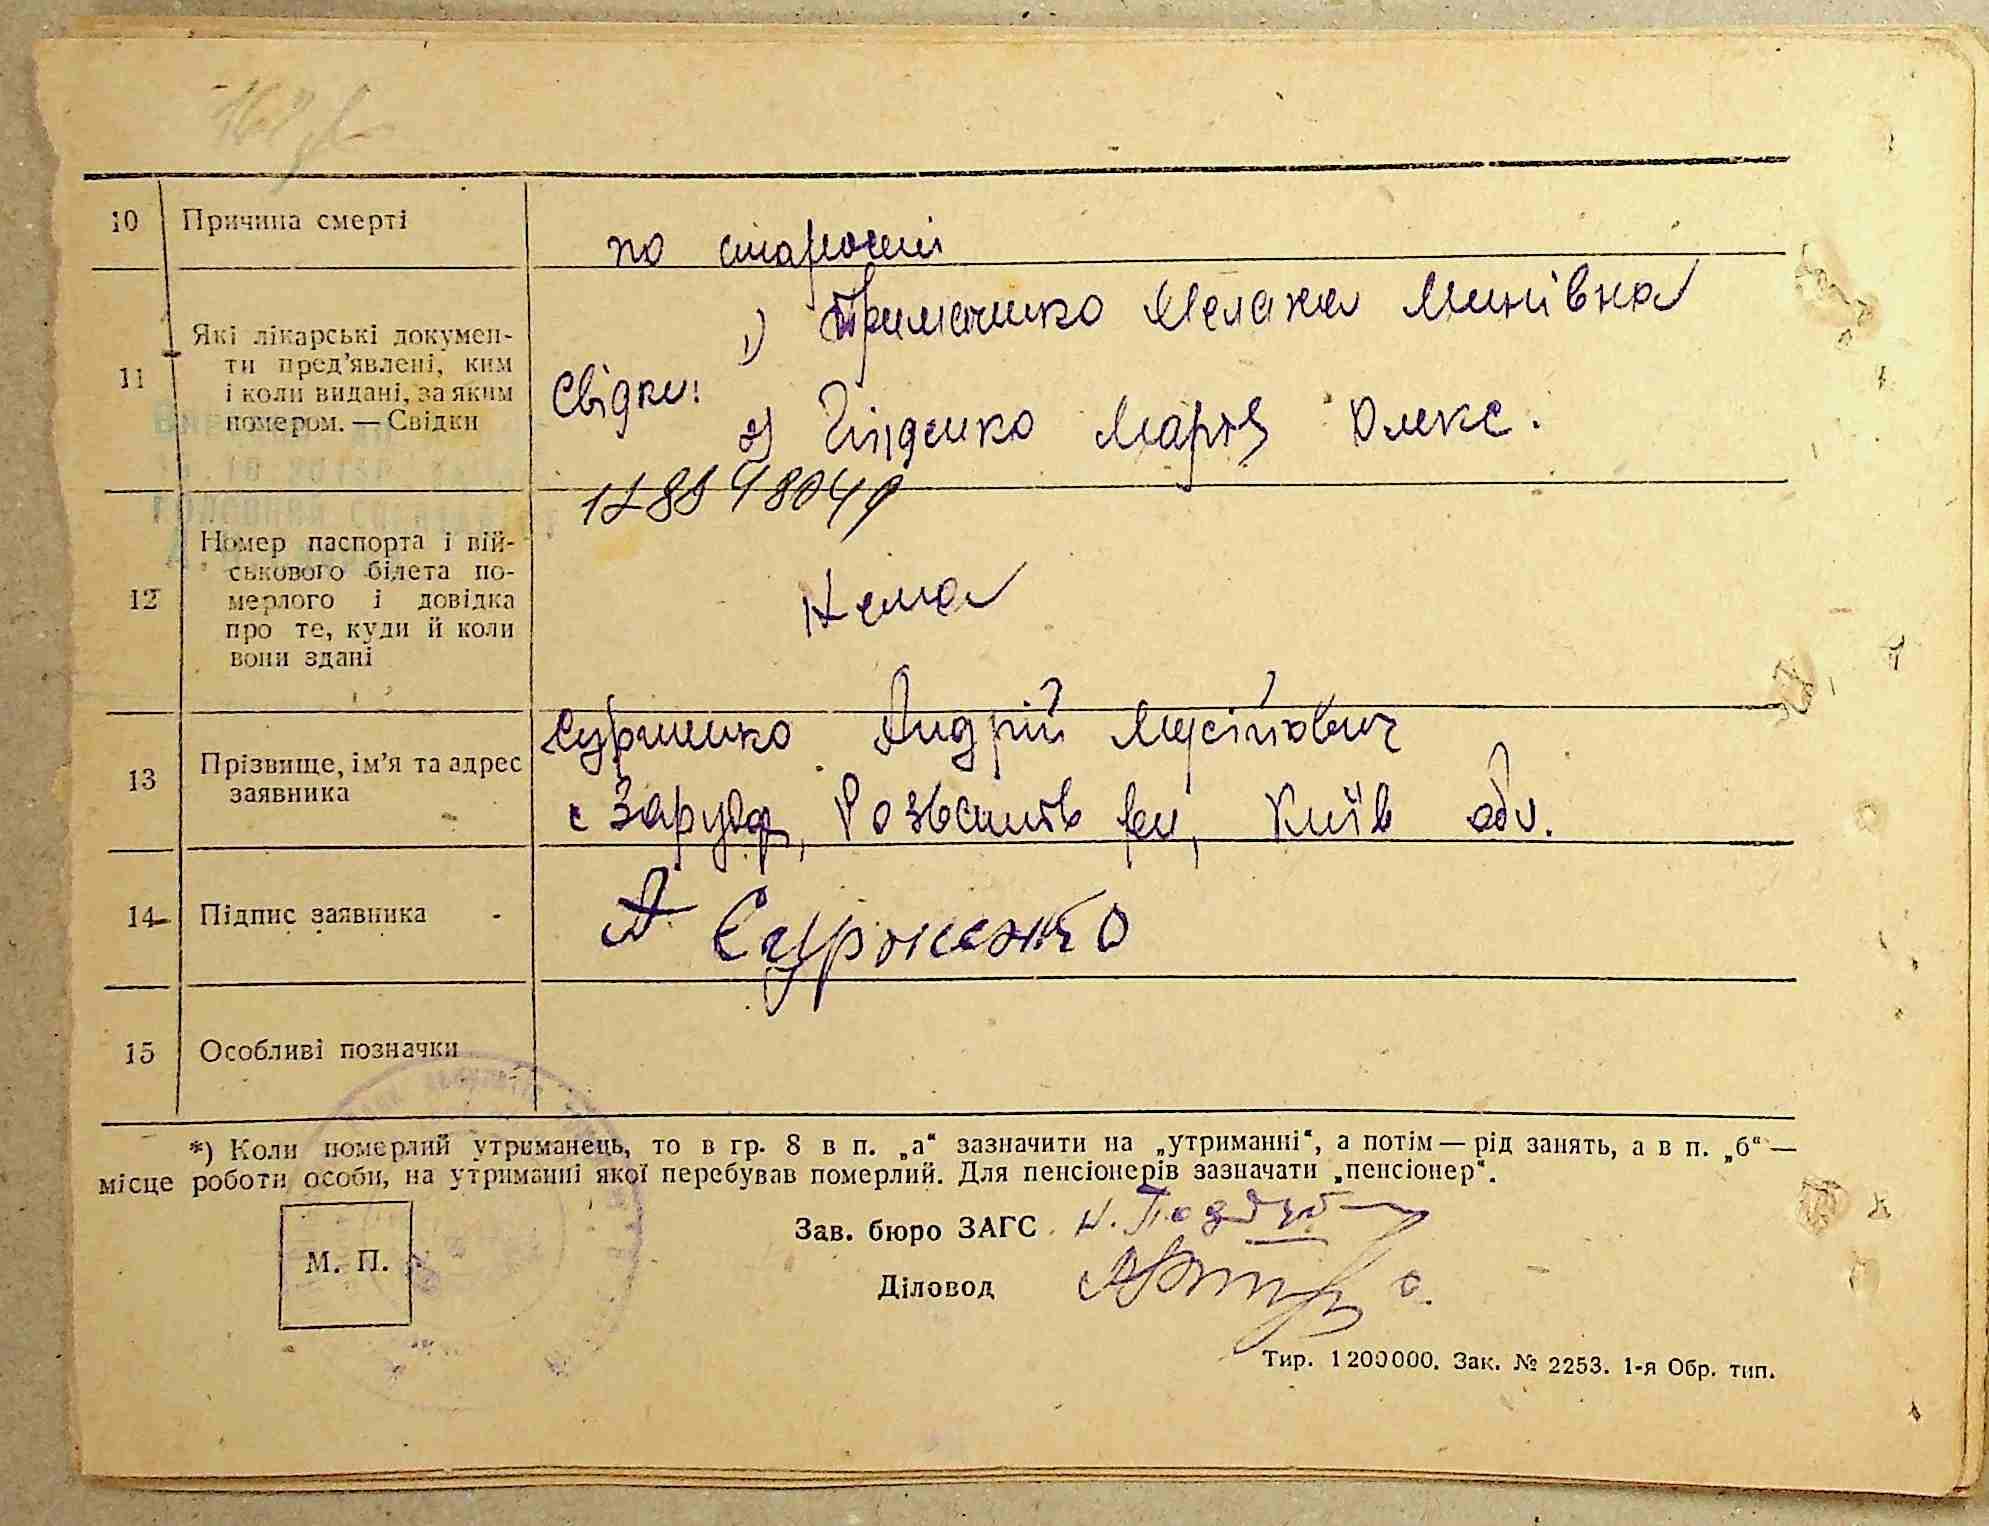 10 Причина смерті
по старості
11 Які лікарські докумен-
ти пред'явлені, ким
і коли видані, за яким
номером. — Свідки
Свідки:
1) Примаченко Мелана Минівна
2) Гпіденко Марія Олекс.
12 Номер паспорта і вій-
ськового білета по-
мерлого і довідка
про те, куди й коли
вони здані
Нема
13 Прізвище, ім'я та адрес
заявника
Сурженко Андрій Мусійович
с Заруддя, Розважів рн, Київ обл.
14 Підпис заявника
А Сурженко
15 Особливі позначки
*) Коли померлий утриманець, то в гр. 8 в п. „а“ зазначити на „утриманні“, а потім — рід занять, а в п. „б“ —
місце роботи особи, на утриманні якої перебував померлий. Для пенсіонерів зазначати „пенсіонер“.
М. П.
Зав. бюро ЗАГС
Діловод
Тир. 1200000. Зак. № 2253. 1-я Обр. тип.